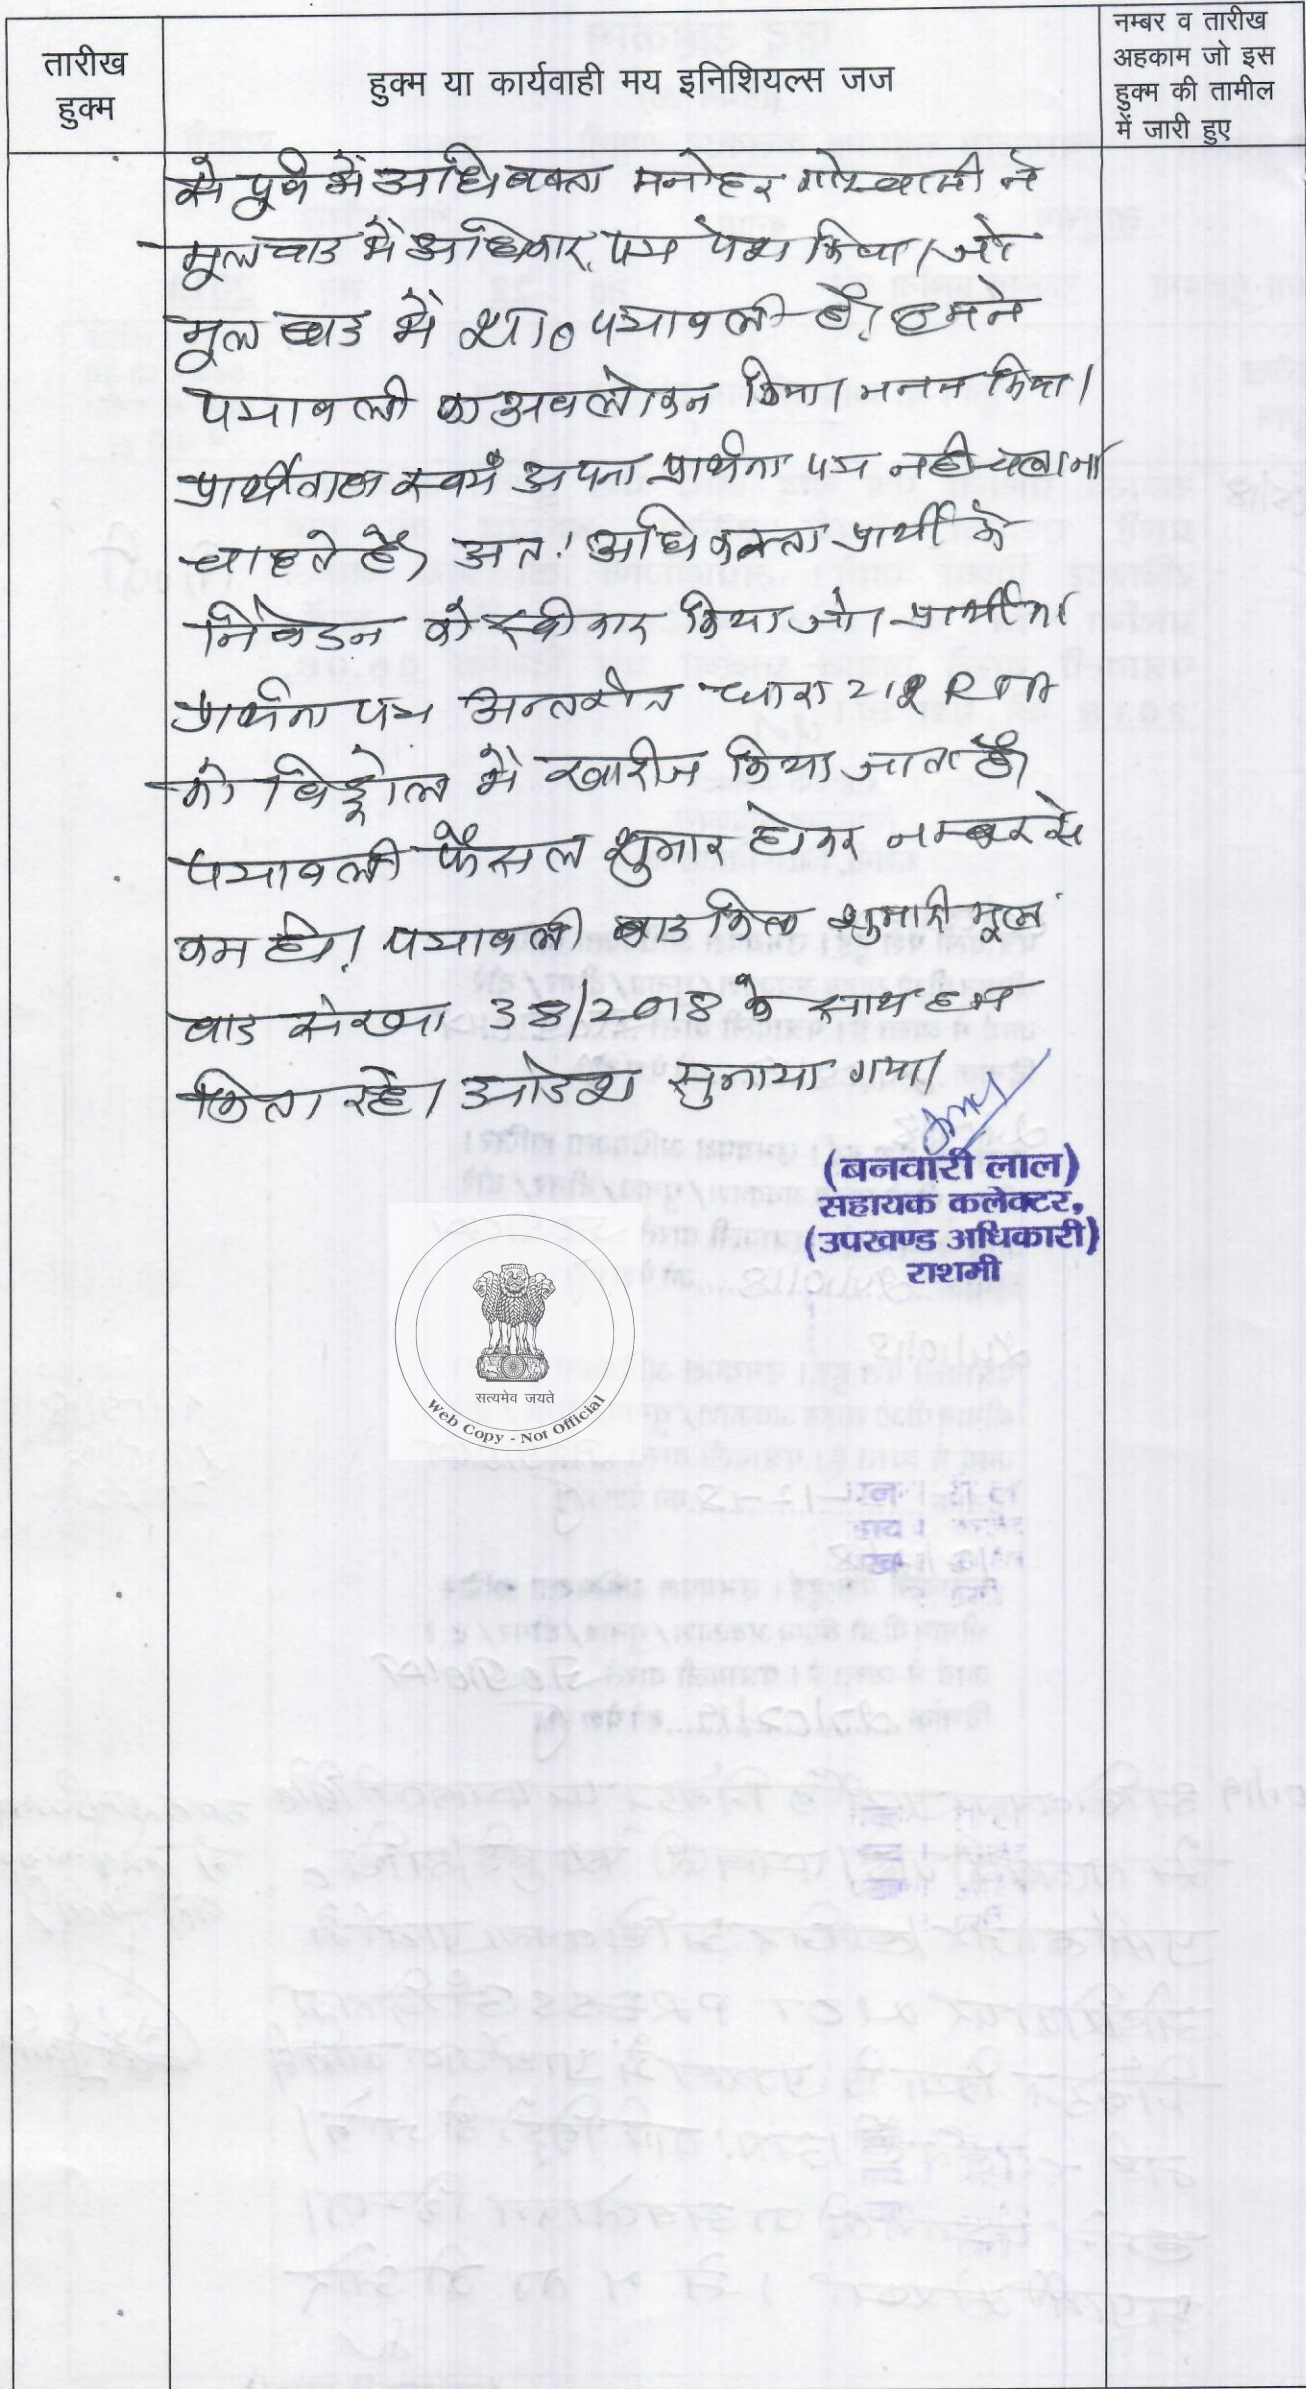 तारीख
हुक्म
हुक्म या कार्यवाही मय इनिशियल्स जज
नम्बर व तारीख
अहकाम जो इस
हुक्म की तामील
में जारी हुए
से पूर्व में अधिवक्ता मनोहर गोस्वामी ने
मूल वाद में अधिकार पत्र पेश किया। जो
मूल वाद में शा० पत्रावली है। हमने
पत्रावली का अवलोकन किया। मनन किया।
प्रार्थीगण स्वयं अपना प्रार्थना पत्र नही चलाना
चाहते है। अतः अधिवक्ता प्रार्थी के
निवेदन को स्वीकार किया जो। प्रार्थी का
प्रार्थना पत्र अन्तर्गत धारा 212 RTA
को विड्रोल में खारीज किया जाता है।
पत्रावली फैसल शुमार होकर नम्बर से
कम हो। पत्रावली बाद शुमारी मूल
वाद संख्या 38/2018 के साथ हम
किता रहे। आदेश सुनाया गया।
(बनवारी लाल)
सहायक कलेक्टर,
(उपखण्ड अधिकारी)
राशमी
सत्यमेव जयते
Web Copy - Not Official